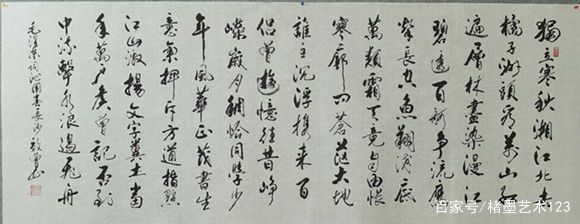 獨立寒秋湘江北去
橘子洲頭看萬山紅
遍層林盡染漫江
碧透百舸爭流鷹
擊長空魚翔淺底
萬類霜天競自由悵
寥廓問蒼茫大地
誰主沉浮攜來百
侶曾遊憶往昔崢
嶸歲月稠恰同學少
年風華正茂書生
意氣揮斥方遒指點
江山激揚文字糞土當
年萬戶侯曾記否到
中流擊水浪遏飛舟
毛澤東詞沁園春長沙
百家号/楮墨艺术123